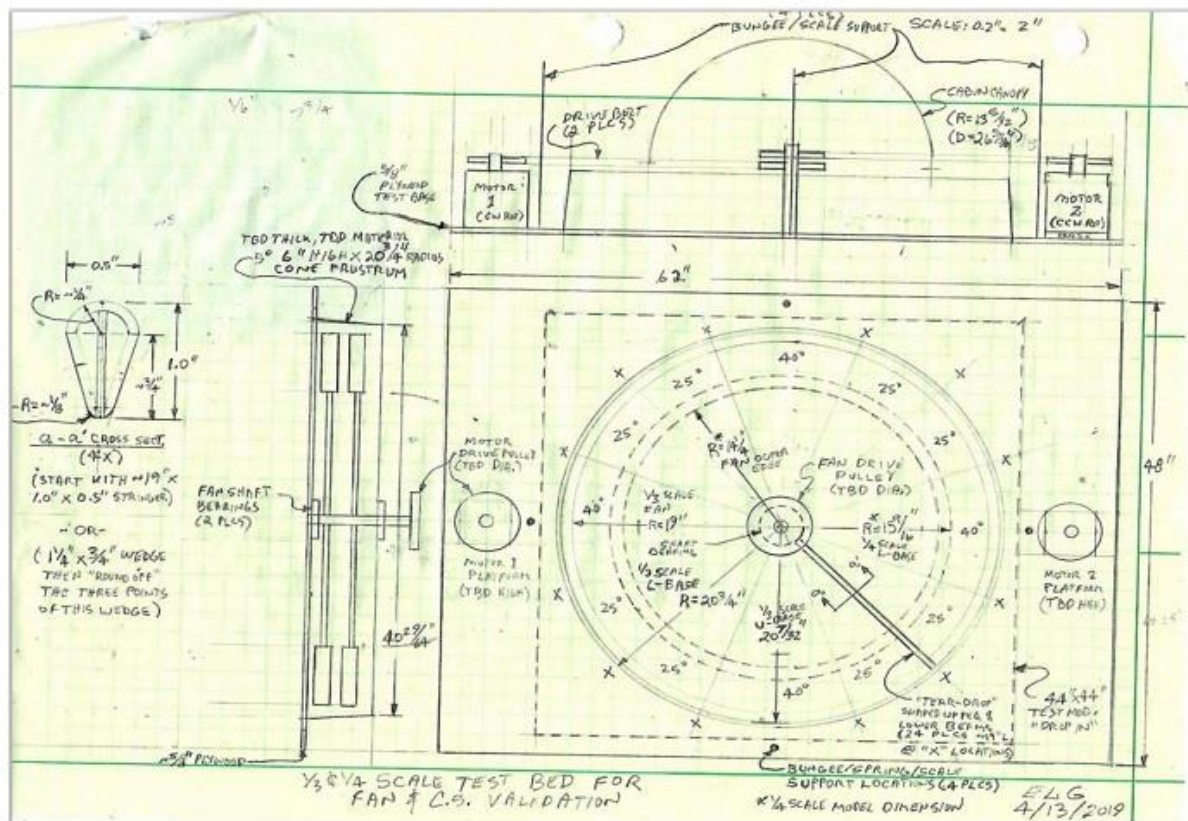 BUNGEE/SCALE SUPPORT
SCALE: 0.2"= 2"
DRIVE BELT
(2 PLCS)
CABIN CANOPY
5/8"
PLYWOOD
TEST BASE
MOTOR
1
(CW RO)
MOTOR
2
(CCW RO)
TBD THICK, TBD MATERIAL
5° 6" HIGH X 20 3/4 RADIUS
CONE FRUSTRUM
62"
0.5"
R=~1/4"
1.0"
~3/4"
R=~1/8"
a-a' CROSS SECT.
(4X)
(START WITH ~19" X
1.0" X 0.5" STRINGER)
-OR-
(1 1/4" X 3/4" WEDGE
THEN "ROUND OFF"
THE THREE POINTS
OF THIS WEDGE)
FAN SHAFT
BEARINGS
(2 PLCS)
MOTOR
DRIVE PULLEY
(TBD DIA.)
MOTOR 1
PLATFORM
(TBD HIGH)
40 29/64"
~5/8" PLYWOOD
40°
25°
25°
25°
25°
FAN OUTER
EDGE
FAN DRIVE
PULLEY
(TBD DIA.)
1/3 SCALE
FAN
R=19"
40°
SHAFT
BEARING
R=15 9/16"
1/4 SCALE
L-BASE
40°
1/3 SCALE
L-BASE
R=20 3/4"
1/3 SCALE
U-BASE
20 7/32"
25°
25°
25°
25°
40°
48"
MOTOR 2
PLATFORM
"TEAR-DROP"
SHAPED UPPER &
LOWER BEAMS
@ "X" LOCATIONS)
44"X44"
TEST MOD.
"DROP IN"
BUNGEE/SPRING/SCALE
SUPPORT LOCATIONS (4 PLCS)
* 1/4 SCALE MODEL DIMENSION
1/3 & 1/4 SCALE TEST BED FOR
FAN & C.S. VALIDATION
ELG
4/13/2019